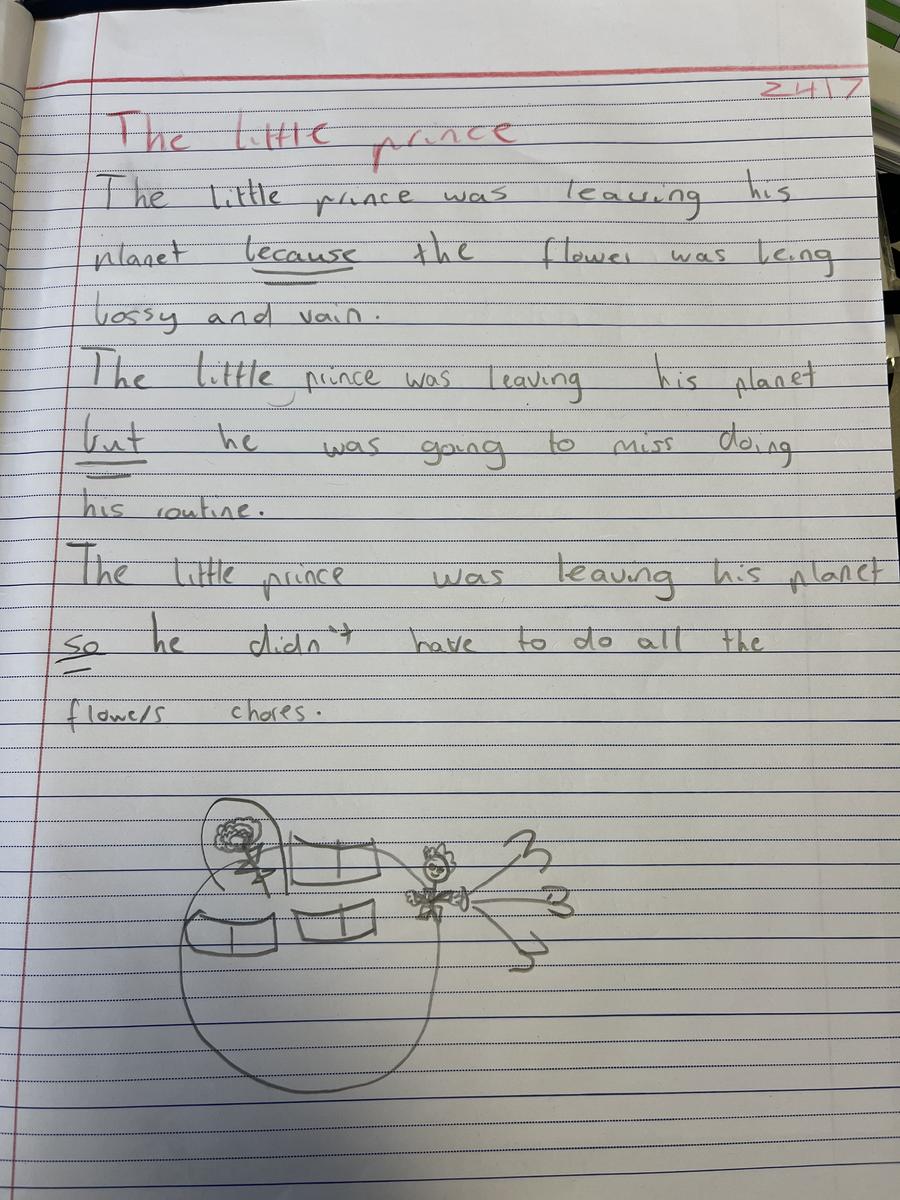 2417
The little prince
The little prince was leaving his
planet because the flower was being
bossy and vain.
The little prince was leaving his planet
but he was going to miss doing
his routine.
The little prince was leaving his planet
so he didn't have to do all the
flowers chores.